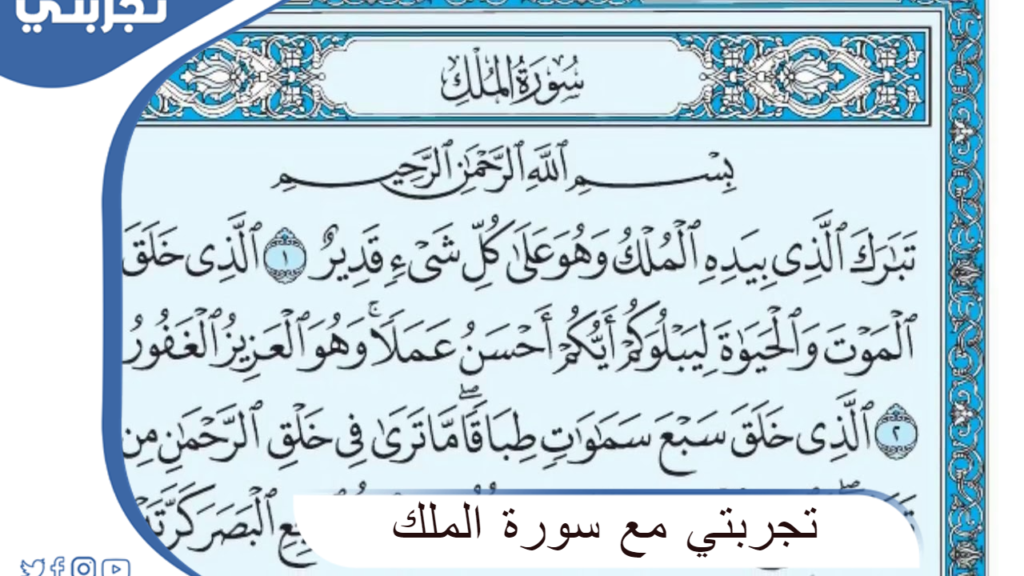 تجربتي
سُورَةُ المُلْكِ
بِسْمِ ٱللَّهِ ٱلرَّحْمَٰنِ ٱلرَّحِيمِ
تَبَٰرَكَ ٱلَّذِى بِيَدِهِ ٱلْمُلْكُ وَهُوَ عَلَىٰ كُلِّ شَىْءٍ قَدِيرٌ ١ ٱلَّذِى خَلَقَ
ٱلْمَوْتَ وَٱلْحَيَوٰةَ لِيَبْلُوَكُمْ أَيُّكُمْ أَحْسَنُ عَمَلًا ۚ وَهُوَ ٱلْعَزِيزُ ٱلْغَفُورُ
٢ ٱلَّذِى خَلَقَ سَبْعَ سَمَٰوَٰتٍ طِبَاقًا ۖ مَّا تَرَىٰ فِى خَلْقِ ٱلرَّحْمَٰنِ مِن
ٱلْبَصَرَ كَرَّتَ
تجربتي مع سورة الملك